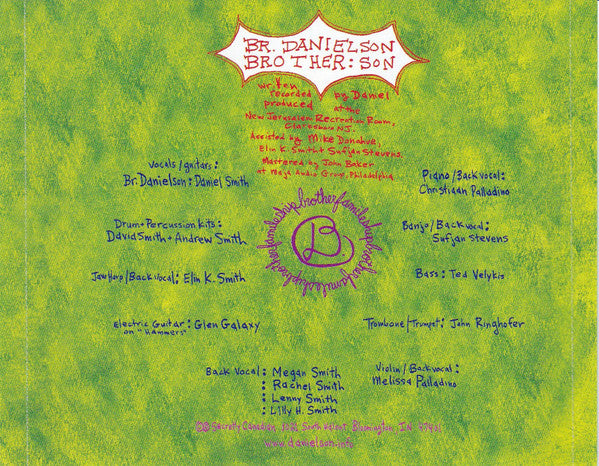 BR. DANIELSON
BROTHER: SON
written
recorded by Daniel
produced at the
New Jerusalem Recreation Room,
Clarksboro NJ.
Assisted by Mike Donahue,
Elin K. Smith + Sufjan Stevens.
Mastered by John Baker
at Maja Audio Group, Philadelphia
vocals/guitars:
Br. Danielson: Daniel Smith
Drum + Percussion Kits:
David Smith + Andrew Smith
Jaw Harp/Back vocal: Elin K. Smith
Electric Guitar: Glen Galaxy
on "Hammers"
Piano/Back vocal:
Christiaan Palladino
Banjo/Back vocal:
Sufjan Stevens
Bass: Ted Velykis
Trombone/Trumpet: John Ringhofer
Violin/Back vocal:
Melissa Palladino
Back Vocal: Megan Smith
: Rachel Smith
: Lenny Smith
: Lilly H. Smith
B
brotherfamileship
Secretly Canadian, 1021 South Walnut, Bloomington, IN 47401
www.danielson.info